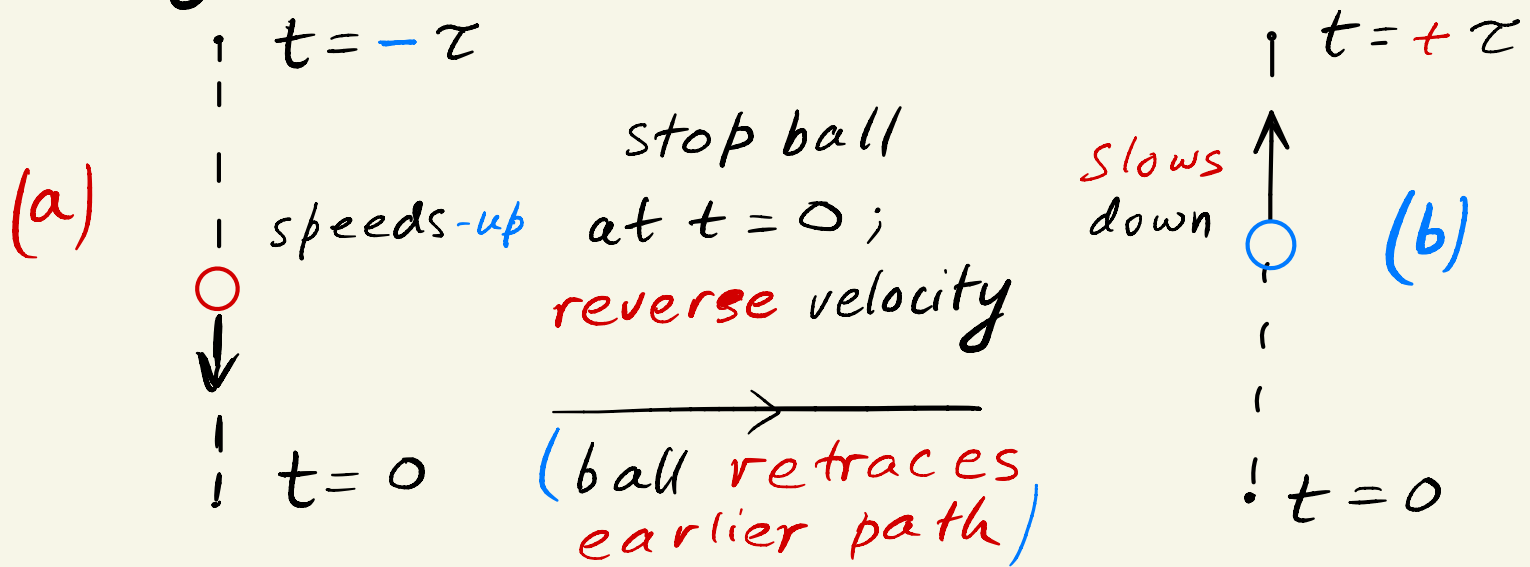 t = - τ
(a)
speeds-up
t = 0
stop ball
at t = 0 ;
reverse velocity
(ball retraces
earlier path)
t = + τ
slows
down
(b)
t = 0